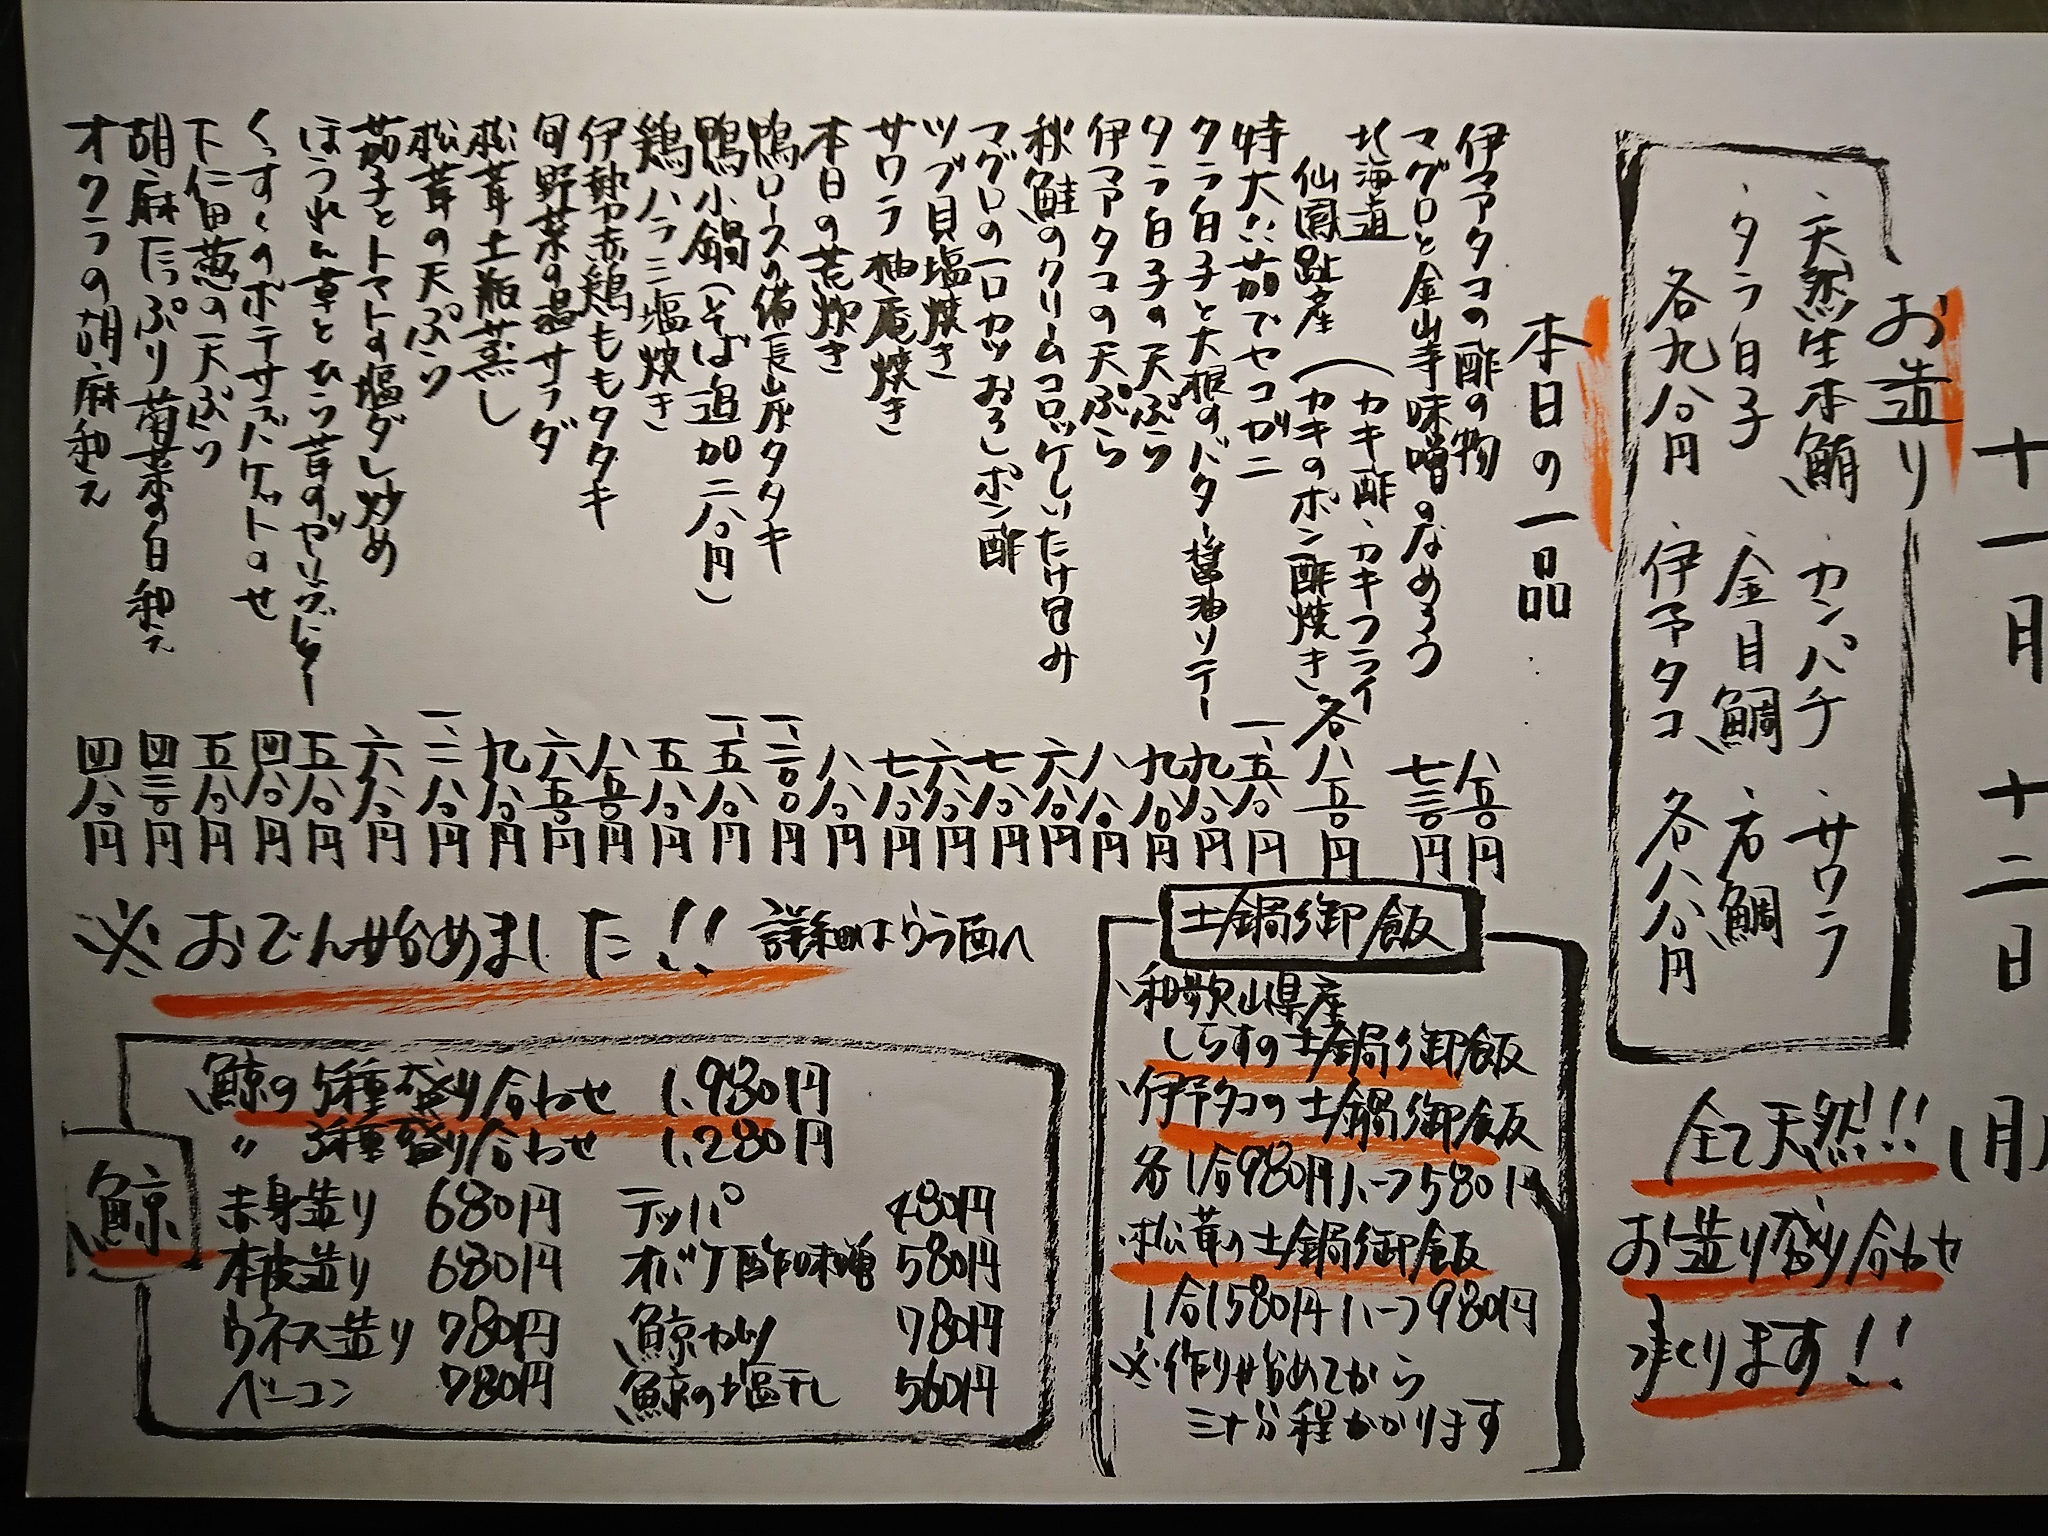 十一月十二日(月)
お造り
・天然生本鮪 ・カンパチ ・サワラ
・タラ白子 ・金目鯛 ・石鯛
各九八〇円 ・伊予タコ 各八八〇円
全て天然!!
お造り盛り合わせ
承ります!!
本日の一品
伊予タコの酢の物 八五〇円
マグロと金山寺味噌のなめろう 七三〇円
北海道 (カキ酢・カキフライ
仙鳳趾産 (カキのポン酢焼き 各八五〇円
特大 茹でセコガニ 一、五八〇円
タラ白子と大根のバター醤油ソテー 九八〇円
タラ白子の天ぷら 九八〇円
伊予タコの天ぷら 八八〇円
秋鮭のクリームコロッケしいたけ包み 六八〇円
マグロの一口カツおろしポン酢 七八〇円
ツブ貝塩焼き 六八〇円
サワラ柚庵焼き 七八〇円
本日の荒炊き 八八〇円
鴨ロースの備長炭タタキ 一、二〇〇円
鴨小鍋(そば追加二八〇円) 一、五八〇円
鶏ハラミ塩焼き 五八〇円
伊勢赤鶏ももタタキ 八五〇円
旬野菜の温サラダ 六五〇円
松茸土瓶蒸し 九八〇円
松茸の天ぷら 一、二八〇円
茄子とトマトの塩ダレ炒め 六八〇円
ほうれん草とひら茸のガーリックソテー 五八〇円
くっすくのポテサラバケットのせ 四八〇円
下仁田葱の天ぷら 五八〇円
胡麻たっぷり菊菜の白和え 四三〇円
オクラの胡麻和え 四八〇円
土鍋御飯
・和歌山県産
しらすの土鍋御飯
・伊予タコの土鍋御飯
各1合980円ハーフ580円
・松茸の土鍋御飯
1合1580円ハーフ980円
※作り始めてから
三十分程かかります
※おでん始めました!! 詳細はうら面へ
鯨
鯨の5種盛り合わせ 1,980円
〃 3種盛り合わせ 1,280円
赤身造り 680円 テッパ 480円
本皮造り 680円 オバケ酢味噌 580円
ウネス造り 780円 鯨カツ 780円
ベーコン 780円 鯨の塩干し 560円